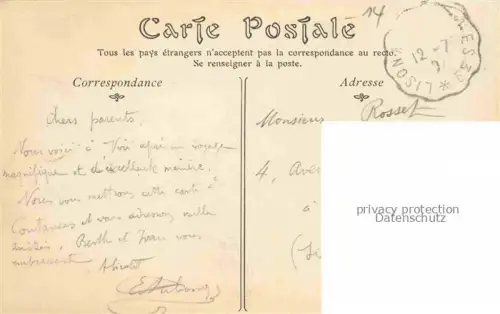 14
Carte Postale
Tous les pays étrangers n'acceptent pas la correspondance au recto.
Se renseigner à la poste.
Correspondance
Adresse
LISON
12-7
Chers parents.
Nous voici à Voir après un voyage
magnifique et d'excellente manière.
Nous vous mettons cette carte à
Coutances et vous adressons mille
amitiés. Berthe et Jean vous
embrassent
Monsieur Rosset
4, Aven
à
privacy protection
Datenschutz